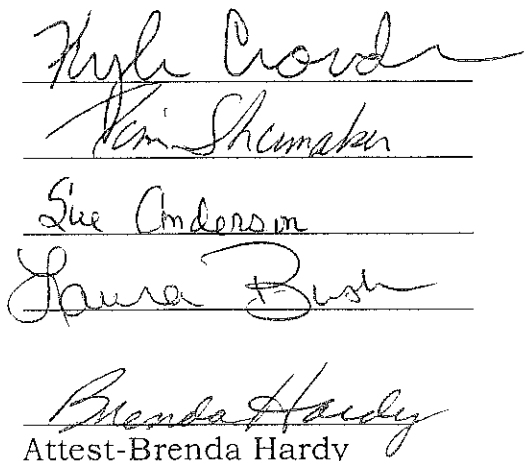 Kyle Crowder
Pam Shumaker
Sue Anderson
Laura Bush
Brenda Hardy
Attest-Brenda Hardy